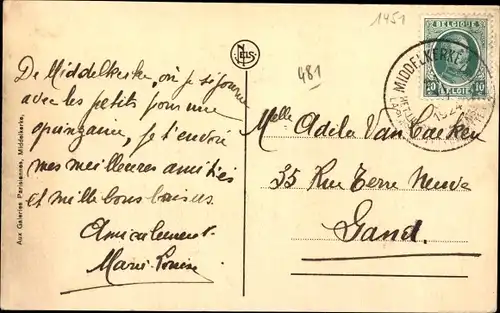 1451
481
NELS
De Middelkerke, où je séjourne
avec les petits pour une
quinzaine, je t'envoie
mes meilleures amitiés
et mille bons baisers
Amicalement
Marie-Louise
Aux Galeries Parisiennes, Middelkerke.
BELGIQUE
10 10
MIDDELKERKE
Melle Adela Van Caeken
35 Rue Terre Neuve
Gand.